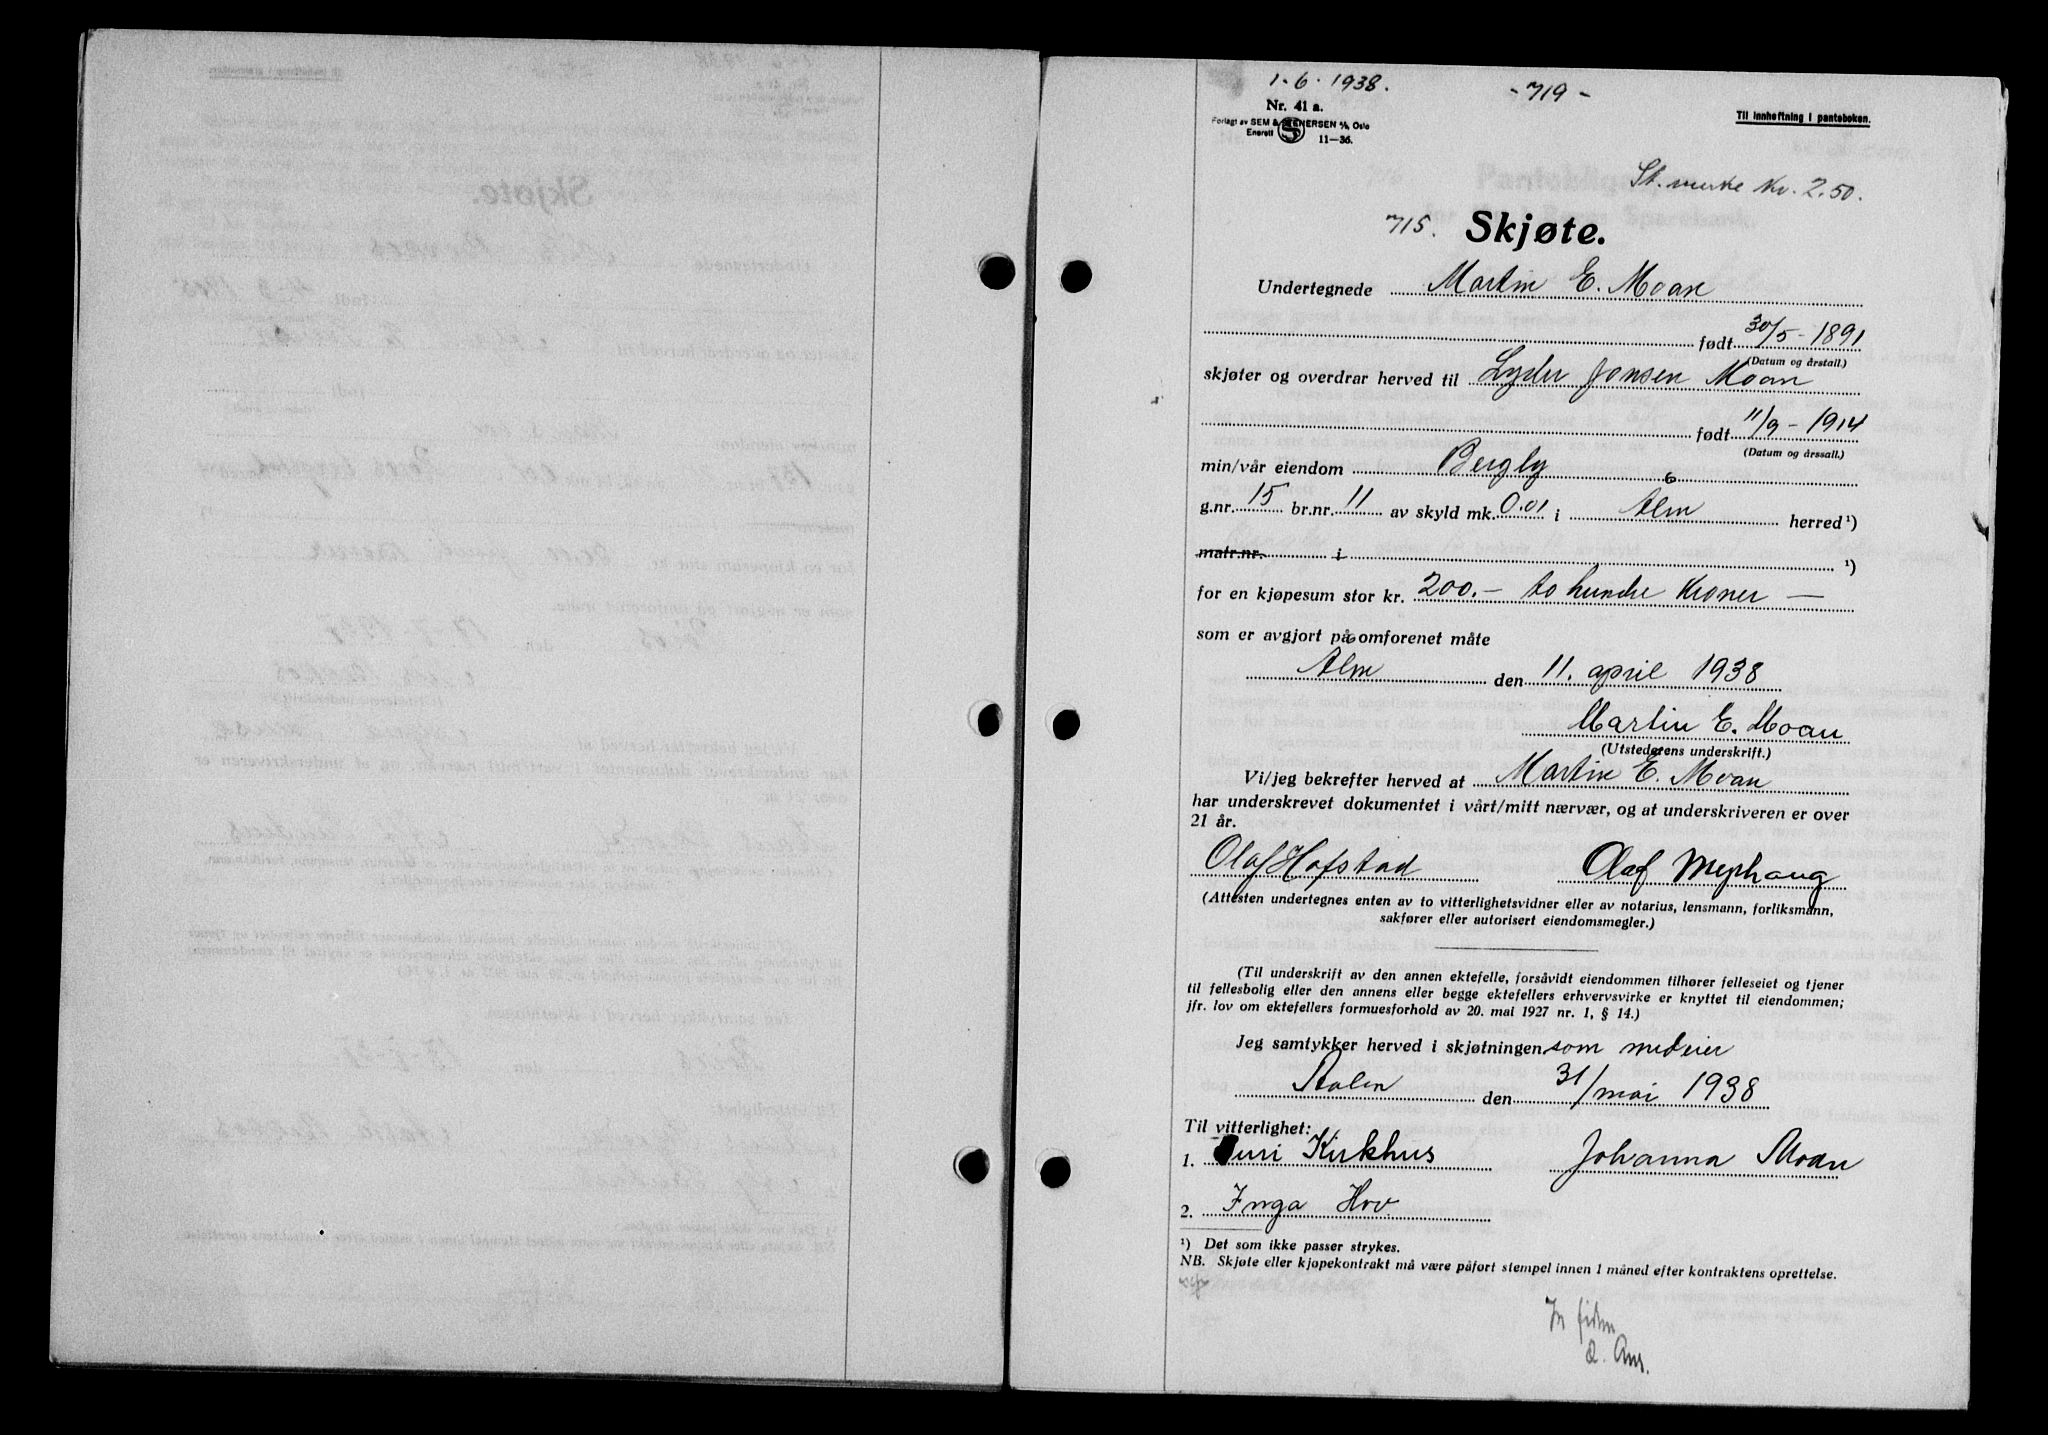 1-6-1938.
- 719 -
Nr. 41 a.
Forlagt av SEM & STENERSEN A/S, Oslo
Enerett
11—36.
Til innheftning i panteboken.
St. merke kr. 2.50.
715. Skjøte.
Undertegnede Martin E. Moan
født 30/5 - 1891
(Datum og årstall.)
skjøter og overdrar herved til Lyder Jonsen Moan
født 11/9 - 1914
(Datum og årssall.)
min/vår eiendom Bergly
g.nr. 15 br.nr. 11 av skyld mk. 0.01 i Ålen herred ¹)
matr.nr. i ¹)
for en kjøpesum stor kr. 200.— to hundre kroner —
som er avgjort på omforenet måte
Ålen den 11. april 1938
Martin E. Moan
(Utstederens underskrift.)
Vi/jeg bekrefter herved at Martin E. Moan
har underskrevet dokumentet i vårt/mitt nærvær, og at underskriveren er over
21 år.
Olaf Hofstad Olaf
(Attesten undertegnes enten av to vitterlighetsvidner eller av notarius, lensmann, forliksmann,
sakfører eller autorisert eiendomsmegler.)
(Til underskrift av den annen ektefelle, forsåvidt eiendommen tilhører felleseiet og tjener
til fellesbolig eller den annens eller begge ektefellers erhvervsvirke er knyttet til eiendommen;
jfr. lov om ektefellers formuesforhold av 20. mai 1927 nr. 1, § 14.)
Jeg samtykker herved i skjøtningen som medeier
den 31/mai 1938
Til vitterlighet:
1. Guri Kirkhus Johanna Moan
2. Inga Hov
¹) Det som ikke passer strykes.
NB. Skjøte eller kjøpekontrakt må være påført stempel innen 1 måned efter kontraktens oprettelse.
In fidem